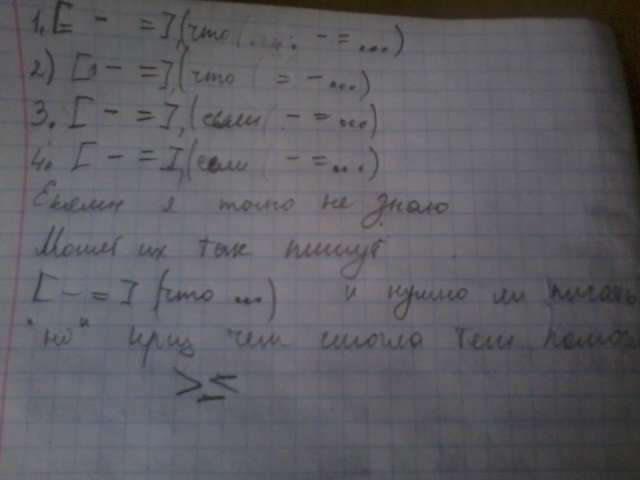 1. [ - = ], (что - = ...)
2) [ - = ], (что = - ...)
3. [ - = ], (если - = ...)
4. [ - = ], (если - = ...)
я точно не знаю
Может их так пишут
[ - = ] (что ...) и нужно ли писать
"но" чем смогла тем помог